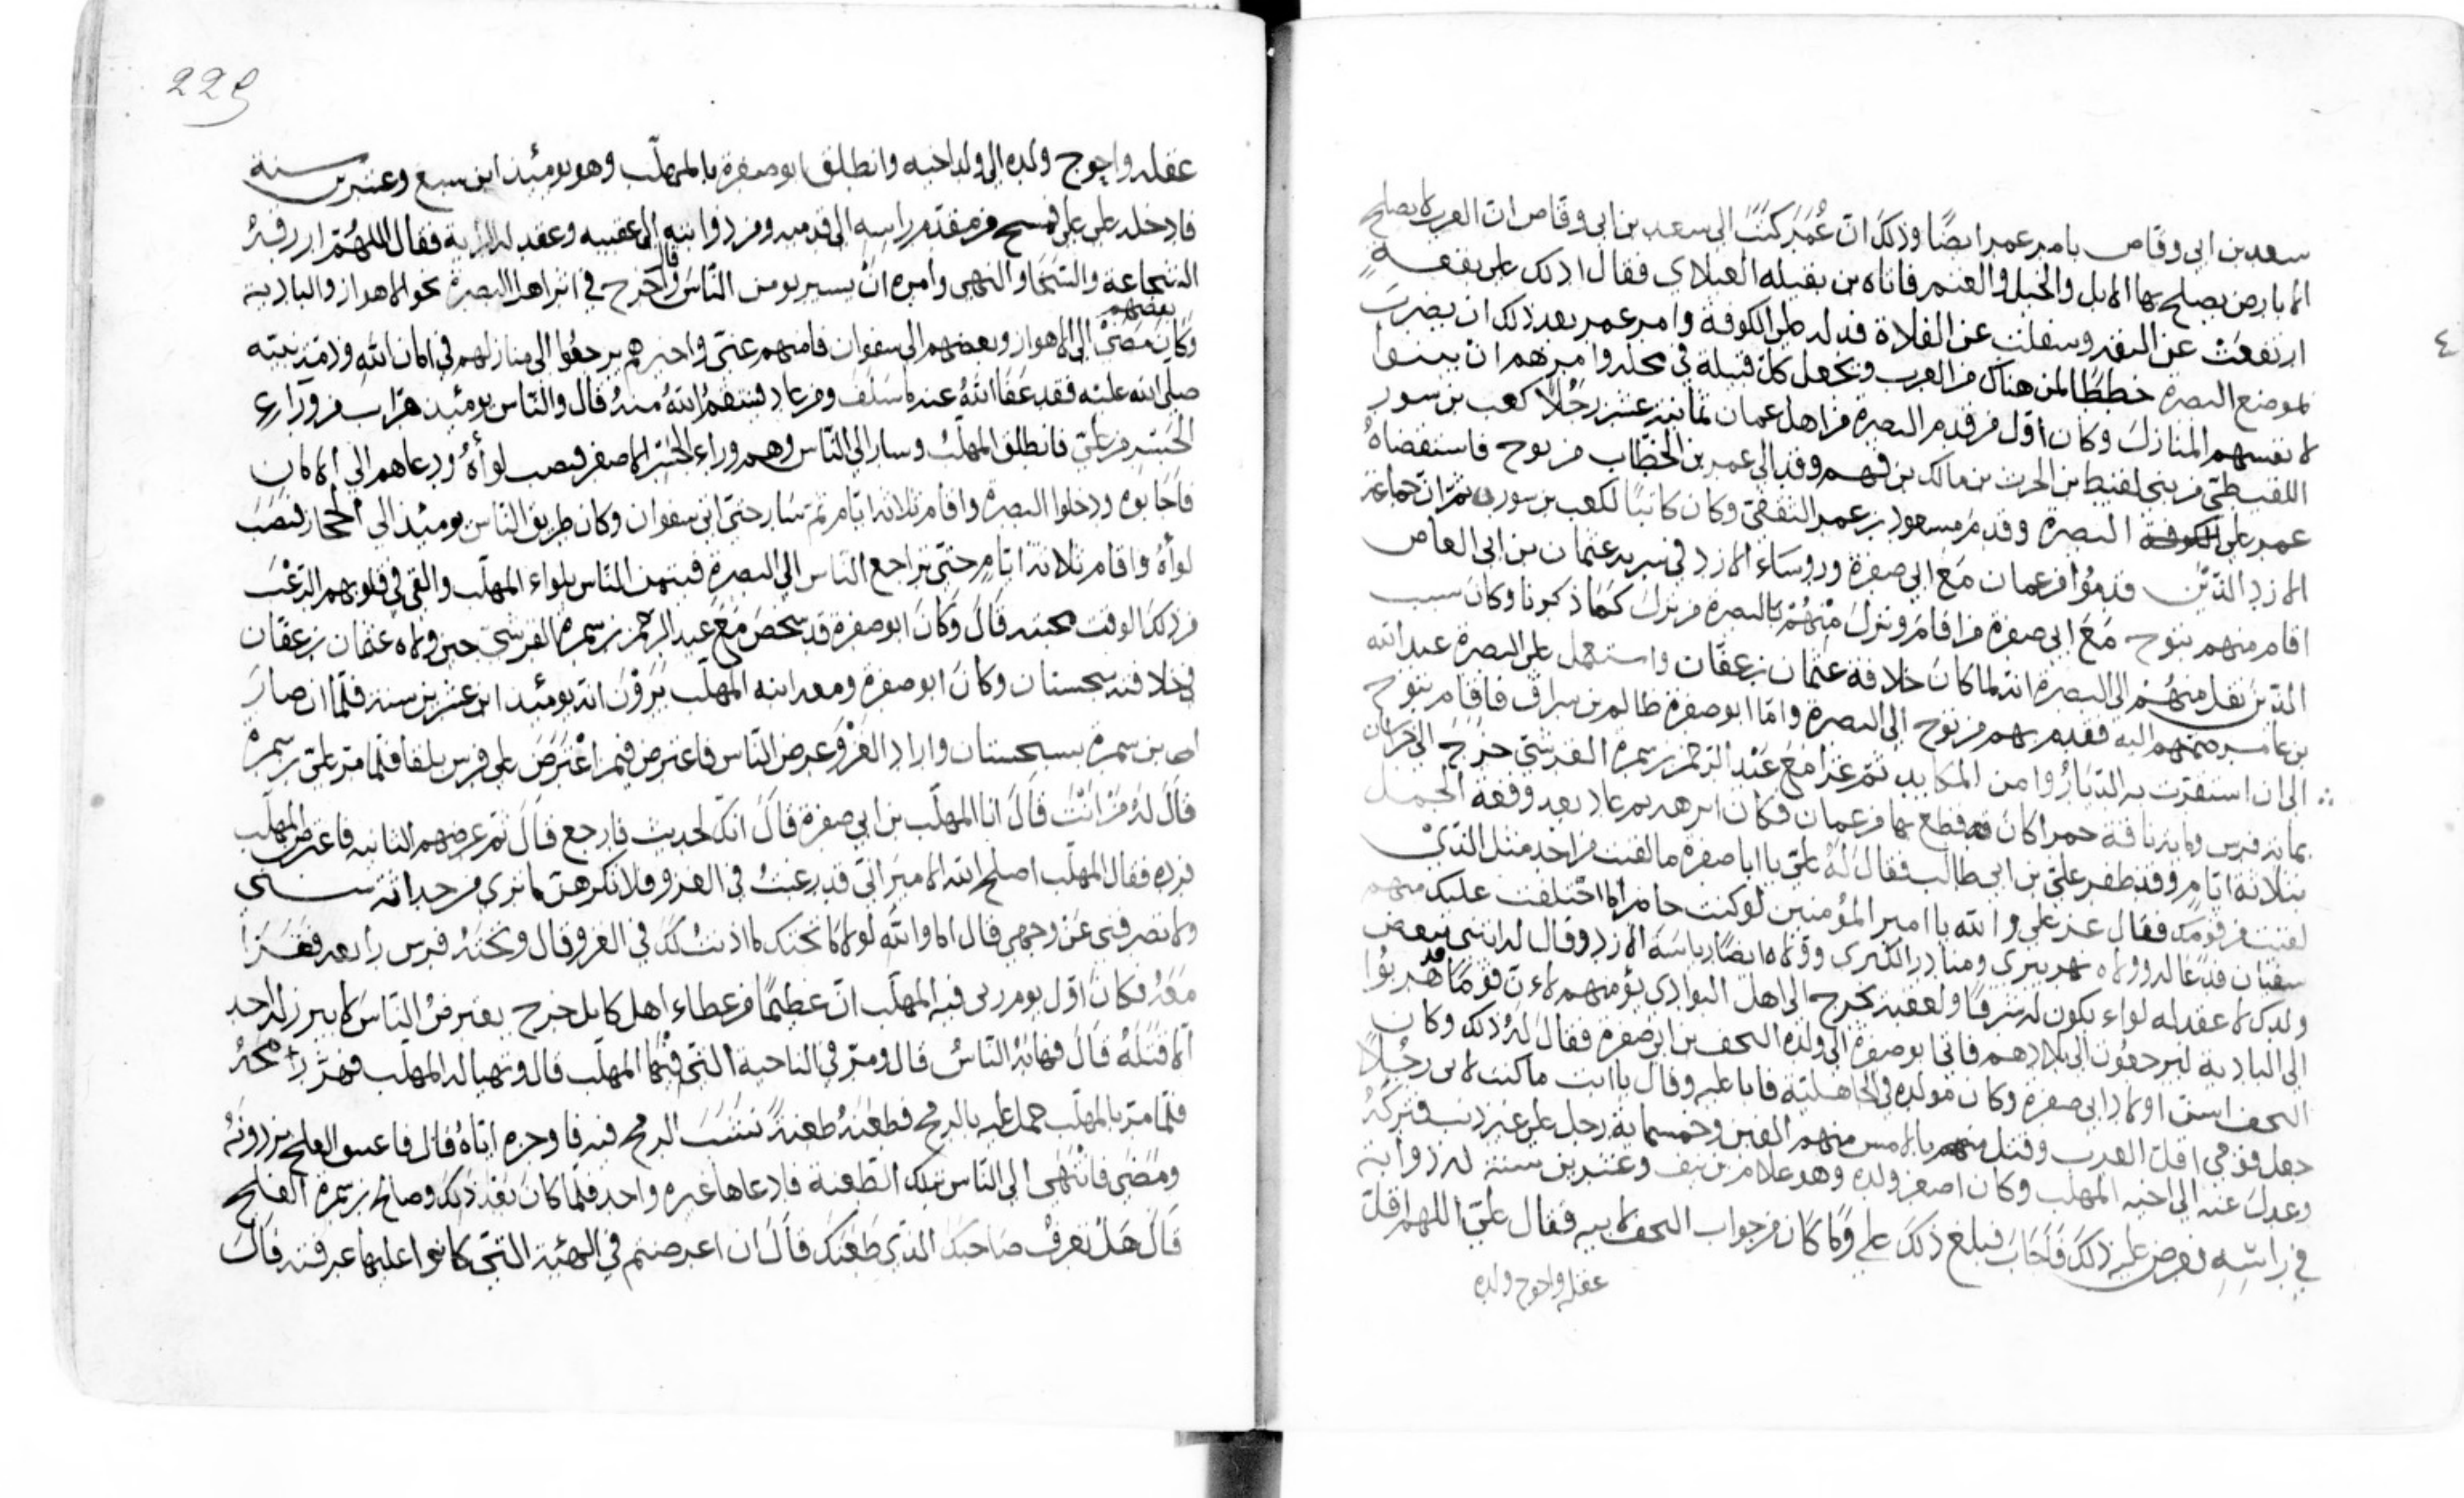 سعد بن ابي وقاص بامر عمر ايضًا وذلك ان عُمَر كتب الى سعد بن ابي وقاص ان العرب لا يصلح
الا بارض يصلح بها الابل والخيل والغنم فاتاه بن بقيله العبلادي فقال ادلك على بقعة
ارتفعت عن البقه وسفلت عن الفلاة فدله على الكوفة وامر عمر بعد ذلك ان يضرب
لموضع البصره خططًا لمن هناك من العرب ويجعل كل قبيلة في محله وامرهم ان يبنوا
لانفسهم المنازل وكان اول من قدم البصرة من اهل عمان ثمانية عشر رجُلًا كعب بن سور
اللقيطي من بني لقيط بن الحرث بن مالك بن فهم وفد الى عمر بن الخطّاب من توح فاستقضاهُ
عمر على البصره وقدم مسعود بن عمر الثقفي وكان كاتبًا لكعب بن سور ثم ان جماعة
الازد الذين قدمُوا من عمان مَع ابي صفرة وروساء الازد في عثمان بن ابي العاص
اقام منهم بتوح مَعَ ابي صفرة من اقام ونزل مِنْهُمْ بالبصرة من نزل كَمَا ذكرنا وكان سبب
الذين نقل منهُم الى البصره انه لما كان خلافة عثمان بن عفان واستعمل على البصرة عبد الله
بن عامر ضمهم اليه فقدم بهم من توح الى البصرة وامّا ابو صفرة ظالم بن سراق فاقام بتوح
الى ان استقرت به الدّار ثم غزا مَع عَبْد الرحمن بن سمرة القرشي خَرَجَ الى خراسان
بمائة فرس ومائة ناقة حمرا كان قد قطع بها من عمان فكان ثم عاد بعد وقعة الجمل
بثلاثة ايّامٍ وقد ظفر علي بن ابي طالب فقال لَهُ علي يا ابا صفرة ما لقيت من احد مثل الذي
لقيت من قومك فقال عز علي والله يا امير المؤمنين لو كنت حاضرًا ما اختلفت عليك منهم
سفيان فدعا له وولاه نهر تيرى ومناذر الكبرى وولاه ايضًا رياسَة الازد وقال له ائتني ببعض
ولدك لاعقد له لواء يكون له شرفًا ولعقبه يخرج الى اهل البوادى يؤمنهم لان قومًا قد هربُوا
الى البادية ليرجعون الى بلادهم فاتى ابو صفرة الى ولده النحف بن ابي صفرة فقال لَهُ ذلك وكان
النحف اسن اولاد ابي صفرة وكان مولده في الجاهلية فابا عليه وقال يا ابت ما كنت لاس رجُلًا
جعل قومي اقل العرب وقتل منهم بالامس منهم الفين وخمسماية رجل على غير ذنب فتركهُ
وعدل عنه الى اخيه المهلب وكان اصغر ولده وهو غلام بن نيف وعشرين سنة له ذوابة
في راسِهِ فعرض عليه ذلك فَاَجَابَ فبلغ ذلك علي وَمَا كان من جواب النحف لابيه فقال علي اللهم اقل
عقله واحوج ولده
٤
229
عقله واحوج ولده الى ولد اخيه وانطلق ابو صفرة بالمهلّب وهو يومئذ ابن سبع وعشرين سنة
فادخله على علي فمسح من مقدم راسه الى قدميه ومن ذوابته الى عقبيه وعقد له الراية فقال اللهُمّ ارزقهُ
الشجاعة والسَّخا والنهى وامره انّ يسير يومن النّاسَ قال وخرج في اثر اهل البصرة نحو الاهواز والبادية
وكانَ مَضَىْ بعضهم الى الاهواز وبعضهم الى سفوان فامنهم عني واخبرهم يرجعُوا الى منازلهم في امان اللّه وذمّة نبيّه
صلى الله عليه فقد عَفَا اللّهُ عنه ما سَلَف ومن عاد فينتقمُ اللّهُ منهُ قال والناس يومئذ هرّاب من وراء
الجسر من علي فانطلق المهلّب وسار الى النّاس وهم وراء الجسر الاصغر فنصب لوآهُ ودعاهم الى الامان
فاجابوه ودخلوا البصره واقام ثلاثة ايّام ثم سَار حتى اتى سفوان وكان طريق النّاس يومئذ الى الحجاز فنصَب
لوآهُ واقام ثلاثة ايّامٍ حتى تراجع الناس الى البصرة فتيمن النّاس بلواء المهلّب والقى في قلوبهم الرّعْب
من ذلك الوقت محبته قَالَ وكانَ ابو صفرة قد شخصَ مَعَ عبد الرّحمن بن سمرة القرشي حين ولاه عثمان بن عفّان
في خلافته سجستان وكانَ ابو صفرة ومعه ابنه المهلّب يَرَوْن انّه يومئذ ابن عشرين سنة فلمّا ان صارَ
بن سمرة بسجستان واراد الغَزْوَ عرض النّاس فاعترض فيمن اعْتَرَضَ على فرس بلقاً فلمّا مرّ على بن سمرة
قالَ لهُ مَنْ انْتَ قالَ انا المهلّب بن ابي صفرة قالَ انّكَ لحديث فارجع قالَ ثم عرضهم الثانيه فاعترض المهلّب
فرده فقال المهلّب اصلح اللّه الامير انّي قد رغبتُ في الغزو فلا تكرهنّ ما ترى من حداثة سنّي
ولا تصرفني عَنْ وجهي قال اما واللّهِ لولا ما نحنك ما اذنتُ لكَ في الغزو قال وتحتَهُ فرس رابعه فَغَزَا
مَعَهُ فكانَ اوّل يوم رئى فيه المهلّب انّ عظيمًا من عظماء اهل كابل خرج يعترضُ النّاسَ لا يبرز له احد
الّا قتلَهُ قال فهابهُ النّاسُ قال ومرّ في الناحية التّي فيْهَا المهلّب قال وتهيا له المهلّب فهزّ رمحَهُ
فلمّا مرّ بالمهلّب حمل عليه بالرمح فطعَنَهُ طعنةً نَشَبَ الرمح فيه فاوجره ايّاهُ قال فاعنق العلج من دونهُ
ومَضَى فانْتهَى الى النّاس بتلك الطّعنة فادعاها غيره واحد فلمّا كانَ بَعْد ذلك وصالح بن سمرة العلج
قَالَ هَلْ تعرفُ صَاحبكَ الّذي طَعَنكَ قَالَ ان اعرضتم في الهيئة التّي كانوا عليها عرفته قالَ